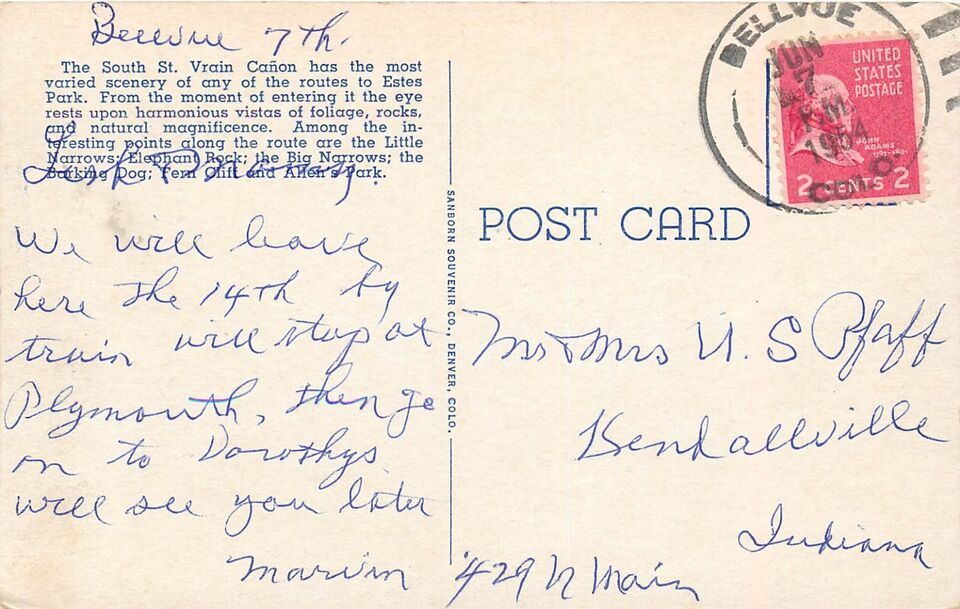 Bellvue 7th.
The South St. Vrain Cañon has the most
varied scenery of any of the routes to Estes
Park. From the moment of entering it the eye
rests upon harmonious vistas of foliage, rocks,
and natural magnificence. Among the in-
teresting points along the route are the Little
Narrows; Elephant Rock; the Big Narrows; the
Barking Dog; Fern Cliff and Allen's Park.
We will leave
here the 14th by
train will stop at
Plymouth, then go
on to Dorothys
will see you later
Marvin
SANBORN SOUVENIR CO., DENVER, COLO.
POST CARD
BELLVUE
JUN
7
1954
COLO.
UNITED
STATES
POSTAGE
JOHN
ADAMS
1797-1801
2 CENTS 2
Mr & Mrs U. S Pfaff
Kendallville
Indiana
429 N Main